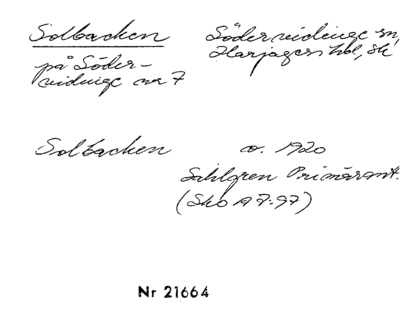 Solbacken
Södervidinge sn,
Harjagers hd, Sk
på Söder-
vidinge nr 7
Solbacken
o. 1920
Sahlgren Primärant.
(Sko A 7:97)
Nr 21664